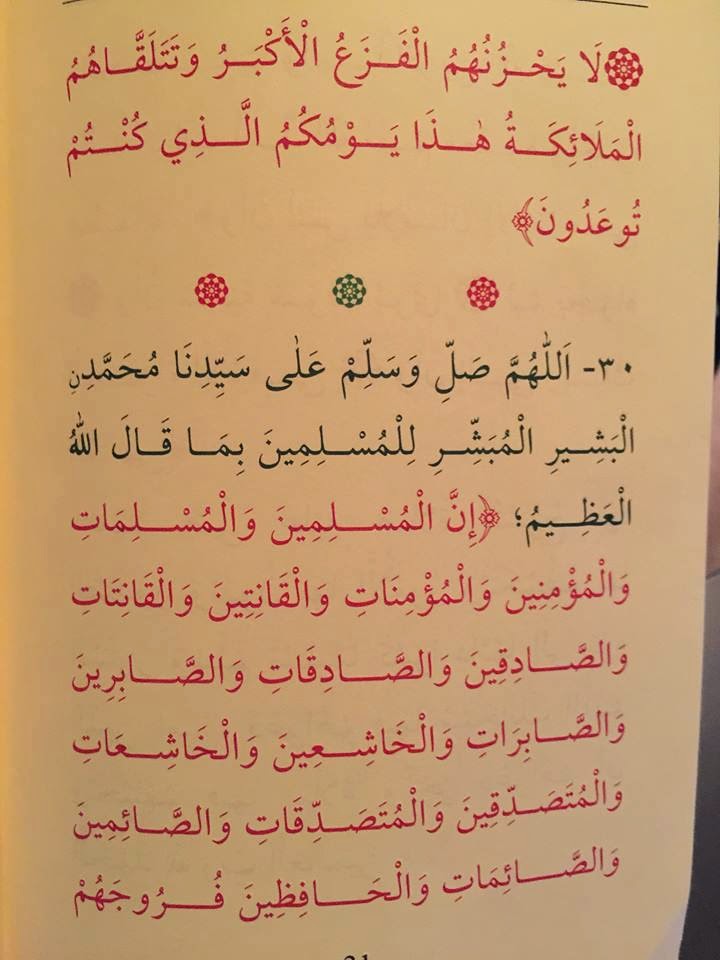 لَا يَحْزُنُهُمُ الْفَزَعُ الْأَكْبَرُ وَتَتَلَقَّاهُمُ
الْمَلَائِكَةُ هٰذَا يَوْمُكُمُ الَّذِي كُنْتُمْ
تُوعَدُونَ﴾
٣٠- اَللّٰهُمَّ صَلِّ وَسَلِّمْ عَلٰى سَيِّدِنَا مُحَمَّدِنِ
الْبَشِيرِ الْمُبَشِّرِ لِلْمُسْلِمِينَ بِمَا قَالَ اللّٰهُ
الْعَظِيمُ؛ ﴿إِنَّ الْمُسْلِمِينَ وَالْمُسْلِمَاتِ
وَالْمُؤْمِنِينَ وَالْمُؤْمِنَاتِ وَالْقَانِتِينَ وَالْقَانِتَاتِ
وَالصَّادِقِينَ وَالصَّادِقَاتِ وَالصَّابِرِينَ
وَالصَّابِرَاتِ وَالْخَاشِعِينَ وَالْخَاشِعَاتِ
وَالْمُتَصَدِّقِينَ وَالْمُتَصَدِّقَاتِ وَالصَّائِمِينَ
وَالصَّائِمَاتِ وَالْحَافِظِينَ فُرُوجَهُمْ